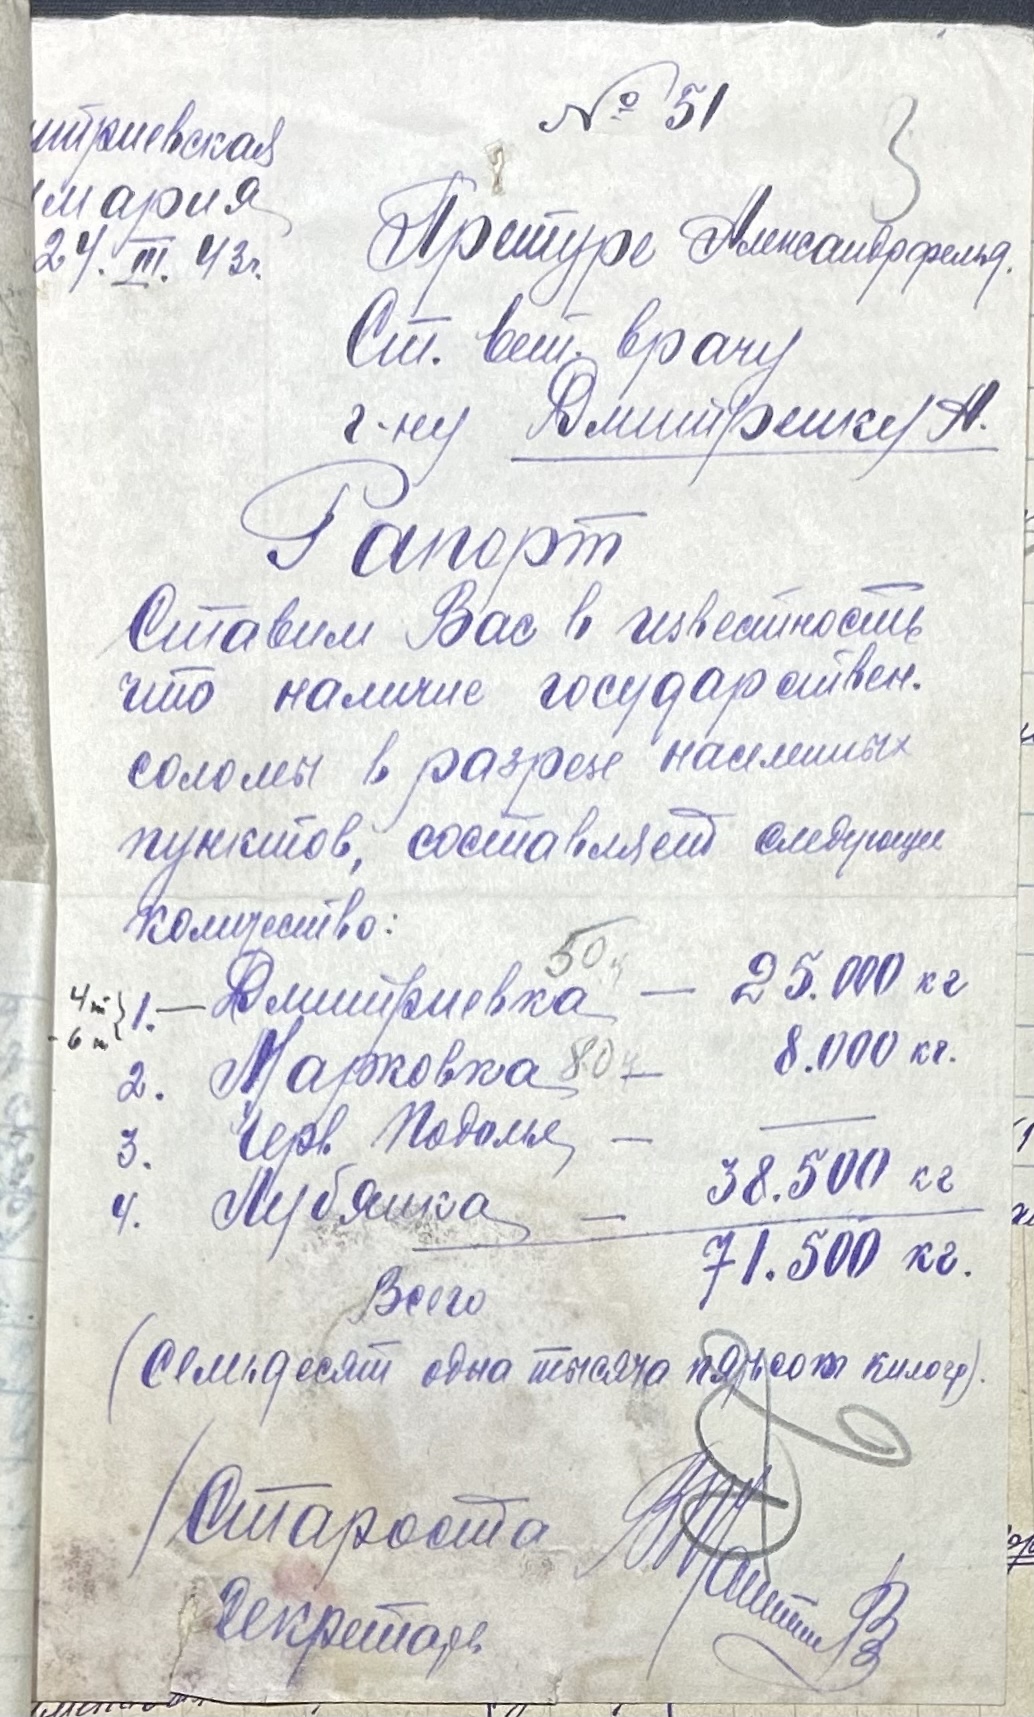 № 51
итриевская
мария
24. III. 43г.
Претуре Александрфельд.
Ст. вет. врачу
г-ну Дмитренку А.
Рапорт
Ставим Вас в известность
что наличие государствен.
соломы в разрезе населенных
пунктов, составляет следующее
количество:
1. — Дмитриевка 50ц — 25.000 кг
4т
6т
2. Марковка 80ц — 8.000 кг.
3. Черв Подолье — —
4. Лубянка — 38.500 кг
Всего 71.500 кг.
(Семьдесят одна тысяча пятьсот килогр).
Староста
Секретарь